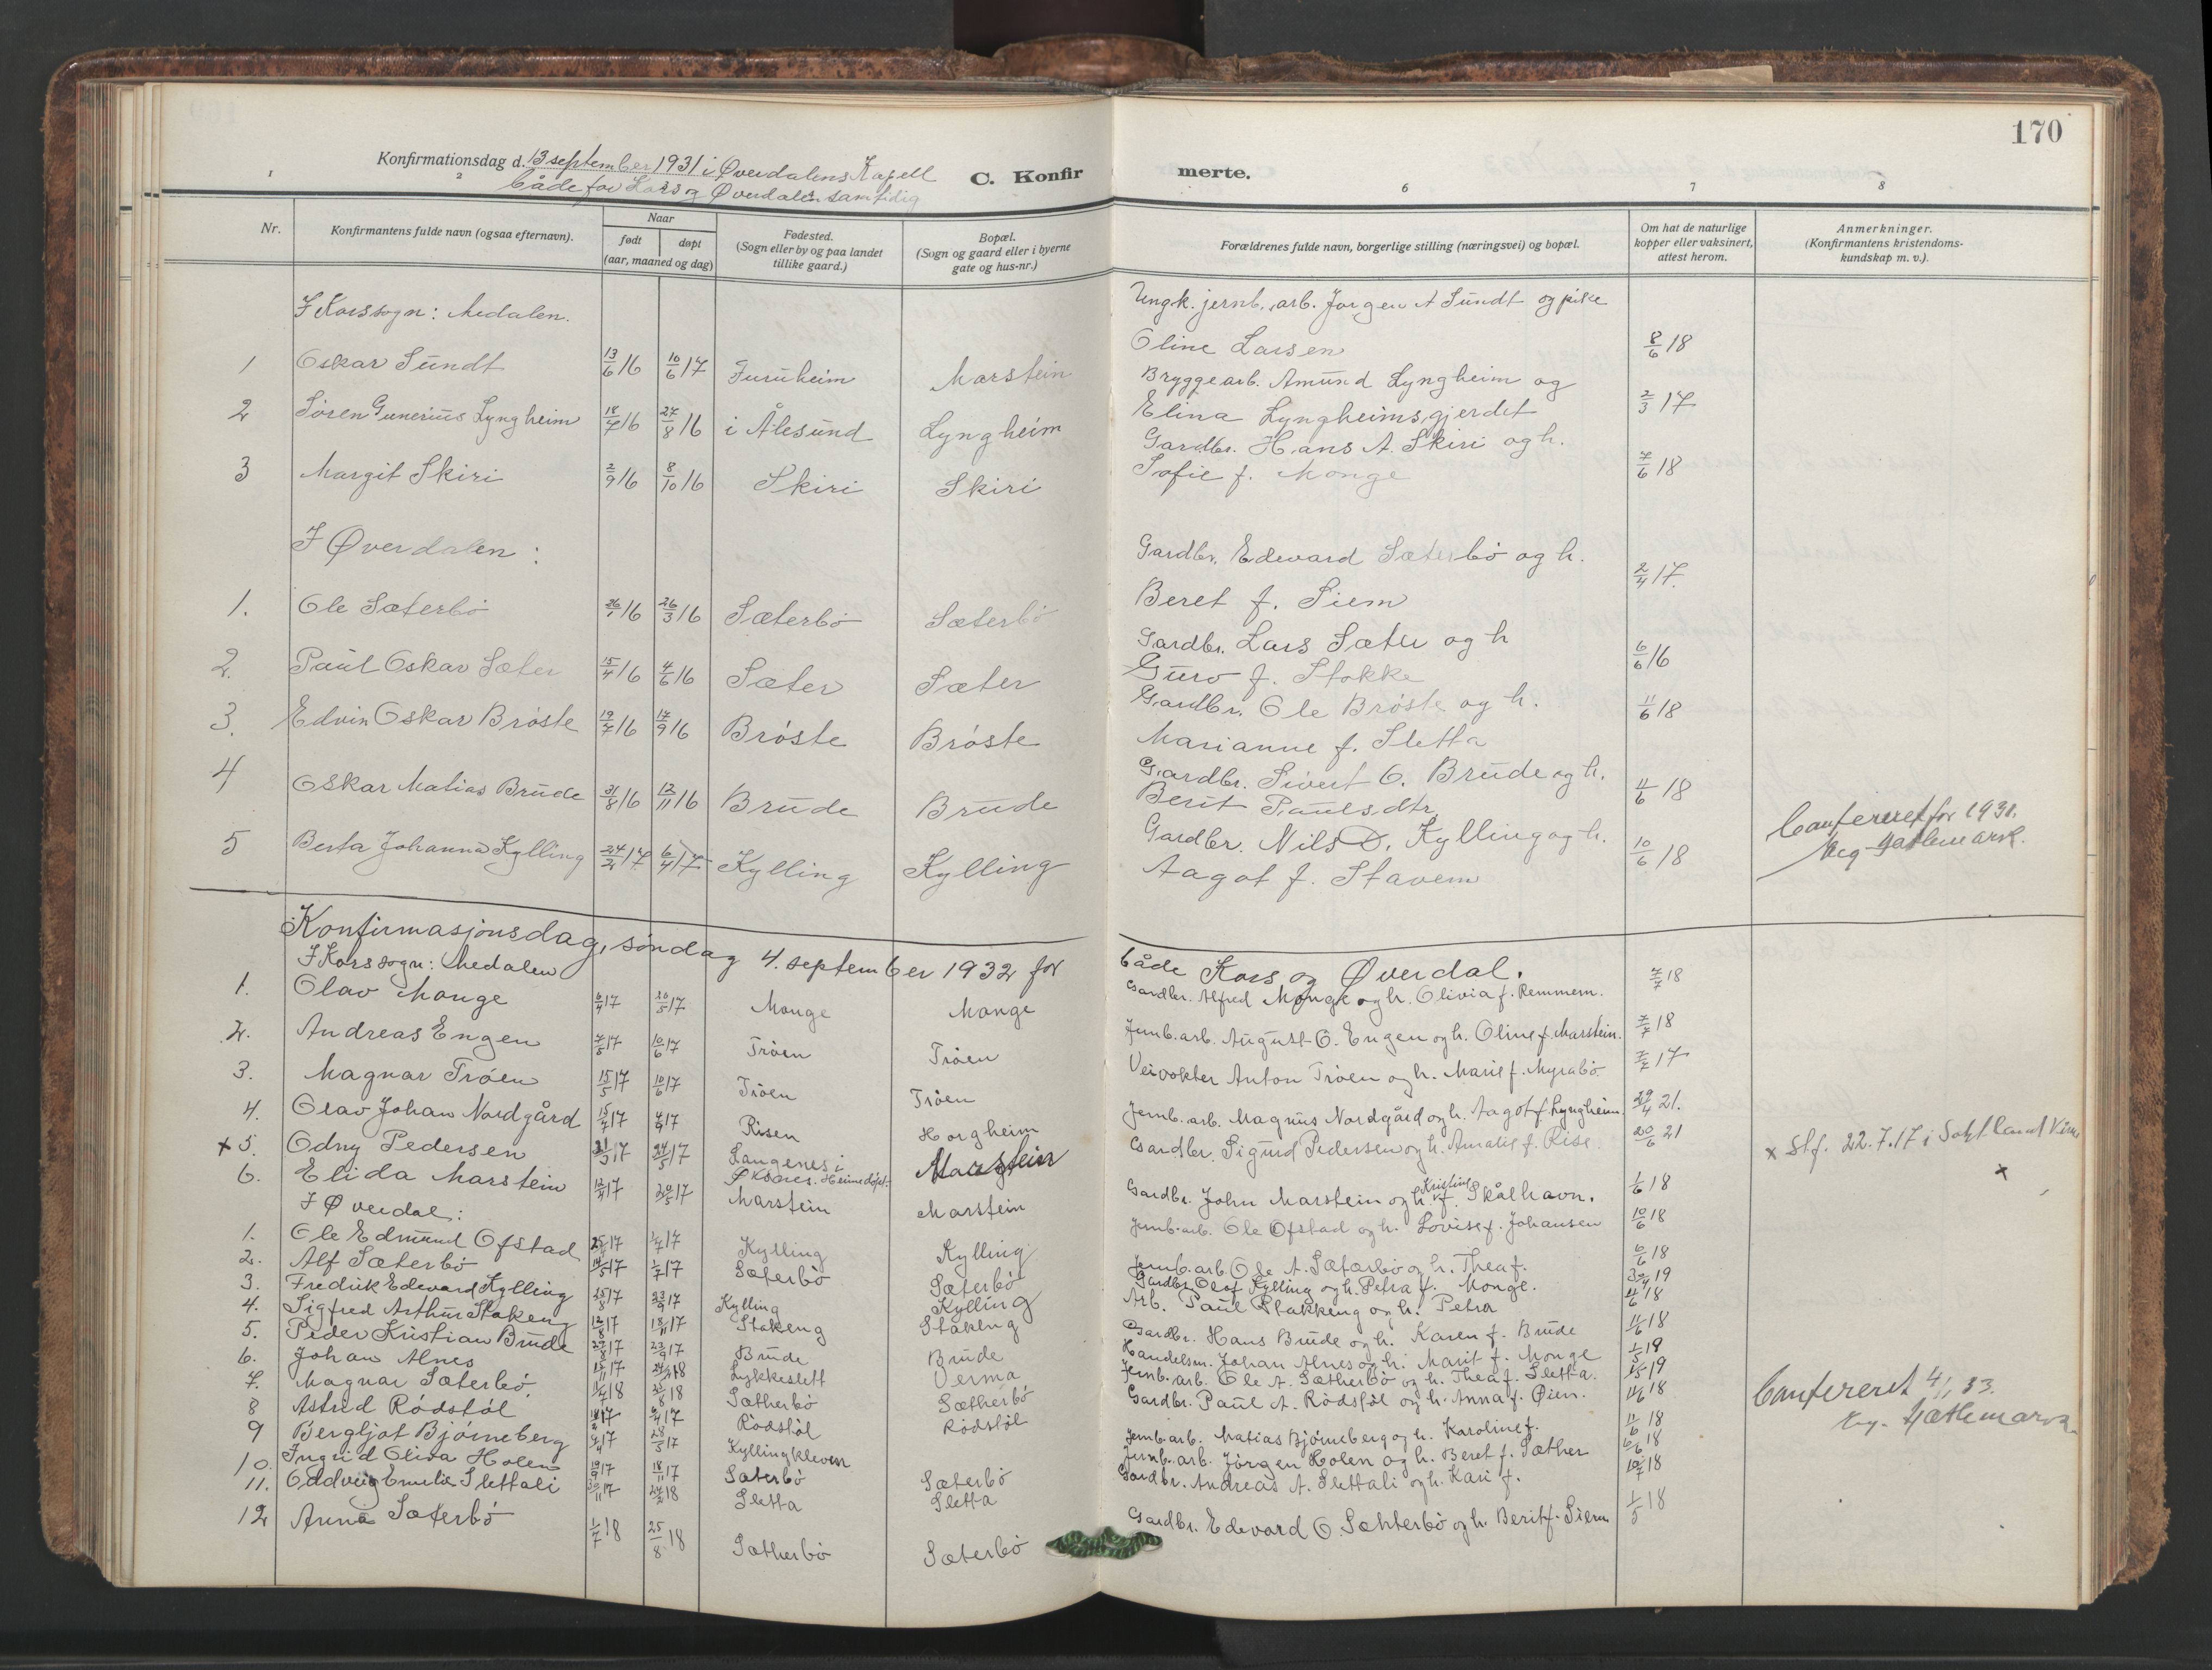 170
Konfirmationsdag d. 13 september 1931 i Øverdalens Kapell
både for Kors og Øverdalen samtidig
C. Konfirmerte.
1 2 6 7 8
Nr.
Konfirmantens fulde navn (ogsaa efternavn).
Naar
født døpt
(aar, maaned og dag)
Fødested.
(Sogn eller by og paa landet
tillike gaard.)
Bopæl.
(Sogn og gaard eller i byerne
gate og hus-nr.)
Forældrenes fulde navn, borgerlige stilling (næringsvei) og bopæl.
Om hat de naturlige
kopper eller vaksinert,
attest herom.
Anmerkninger.
(Konfirmantens kristendoms-
kundskap m. v.).
I Kors sogn: Medalen.
Ungk. jernb. arb. Jørgen A Sundt og pike
1 Oskar Sundt 13/6 16 10/6 17 Furuheim Marstein Oline Larsen 8/6 18
Bryggearb. Amund Lyngheim og
2 Søren Gunerius Lyngheim 18/7 16 27/8 16 i Ålesund Lyngheim Elina Lyngheimsgjerdet 2/3 17
Gardbr. Hans A. Skiri og h.
3 Margit Skiri 2/9 16 8/10 16 Skiri Skiri Sofie f. Monge 7/6 18
I Øverdalen:
Gardbr. Edevard Sæterbø og h.
1. Ole Sæterbø 26/1 16 26/3 16 Sæterbø Sæterbø Beret f. Siem 2/4 17.
Gardbr. Lars Sæter og h
2. Paul Oskar Sæter 15/4 16 4/6 16 Sæter Sæter Guro f. Stokke 6/6 16
Gardbr. Ole Brøste og h.
3. Edvin Oskar Brøste 19/7 16 17/9 16 Brøste Brøste Marianne f. Sletta 11/6 18
Gardbr. Sivert O. Brude og h.
4 Oskar Matias Brude 31/8 16 12/11 16 Brude Brude Berit Paulsdtr 11/6 18
Gardbr. Nils D. Kylling og h.
5 Berta Johanna Kylling 24/2 17 6/4 17 Kylling Kylling Aagot f. Stavem 10/6 18
Confereret for 1931.
Konfirmasjonsdag, søndag 4. september 1932 for både Kors og Øverdal.
I Kors sogn: Medalen
1. Olav Monge 6/4 17 20/5 17 Monge Monge Gardbr. Alfred Monge og h. Olivia f. Remmem. 7/7 18
2. Andreas Engen 7/5 17 10/6 17 Trøen Trøen Jernb.arb. August O. Engen og h. Oline f. Marstein. 7/7 18
3. Magnar Trøen 15/5 17 10/6 17 Trøen Trøen Veivokter Anton Trøen og h. Marie f. Myrabø. 7/7 17
4. Olav Johan Nordgård 17 17 Risen Horgheim Jernb. arb. Magnus Nordgård og h. Aagot f. Lyngheim. 21.
x 5. Odny Pedersen 17 24/5 17 Langenes i Øksnes. Heimedøpt. Marstein Gardbr. Sigurd Pedersen og h. Amalie f. Rise. 20/6 21
x Stf. 22.7.17 i
x
6. Elida Marstein 17 20/5 17 Marstein Marstein Gardbr. John Marstein og h. Kristine f. Skålhavn. 1/6 18
I Øverdal:
1. Ole Edmund Ofstad 17 17 Kylling Kylling Jernb.arb. Ole Ofstad og h. Lovise f. Johansen 10/6 18
2. Alf Sæterbø 17 1/7 17 Sæterbø Sæterbø Jernb.arb. Ole A. Sæterbø og h. Thea f. 6/6 18
3. Fredrik Edevard Kylling 17 23/9 17 Kylling Kylling Gardbr. Olof Kylling og h. Petra f. Monge. 19
4. Sigfred Arthur Stakeng 12/8 17 18/11 17 Stakeng Stakeng Arb. Paul Stakkeng og h. Petra 18
5. Peder Kristian Brude 17 23/9 17 Brude Brude Gardbr. Hans Brude og h. Karen f. Brude 11/6 18
6. Johan Alnes 17 18 Lykkeslett Verma Handelsm. Johan Alnes og h. Marit f. Monge 19
7. Magnar Sæterbø. 18 25/8 18 Sætherbø Sætherbø Jernb. arb. Ole A. Sætherbø og h. Thea f. Sletta. 19
8 Astrid Rødstøl 17 17 Rødstøl Rødstøl Gardbr. Paul A. Rødstøl og h. Anna f. Øien. 11/6 18
Confereret 4/1 33.
9 Bergljot Bjørneberg 17 17 Kyllingkleven Jernb.arb. Matias Bjørneberg og h. Karoline f. 11/6 18
10. Ingrid Oliva Holen 17 18/11 17 Sæterbø Sæterbø Jernb. arb. Jørgen Holen og h. Beret f. Sæther 18
11. Oddveig Emelie Slettali 17 18 Sletta Sletta Gardbr. Andreas A. Slettali og h. Kari f. 18
12 Anna Sæterbø 1/7 18 25/8 18 Sætherbø Sæterbø Gardbr. Edevard O. Sæhterbø og h. Berit f. Siem 1/5 18